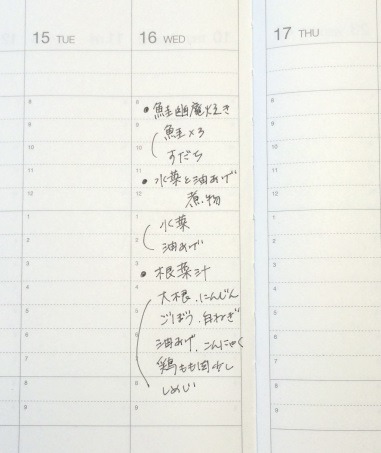 15 TUE
16 WED
17 THU
8
9
10
11
12
1
2
3
4
5
6
7
8
9
• 鮭幽庵焼き
鮭×3
すだち
• 水菜と油あげ
煮物
水菜
油あげ
• 根菜汁
大根、にんじん
ごぼう、白ねぎ
油あげ、こんにゃく
鶏もも肉少し
しめじ